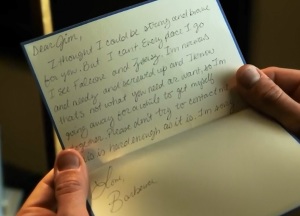 Dear Jim,
I thought I could be strong and brave
for you. But I can't. Every place I go
I see Falcone and Zsasz. I'm nervous
and needy and screwed up and I know
that's not what you need or want. So I'm
going away for awhile to get myself
together. Please don't try to contact me.
This is hard enough as it is. I'm sorry.
Love,
Barbara